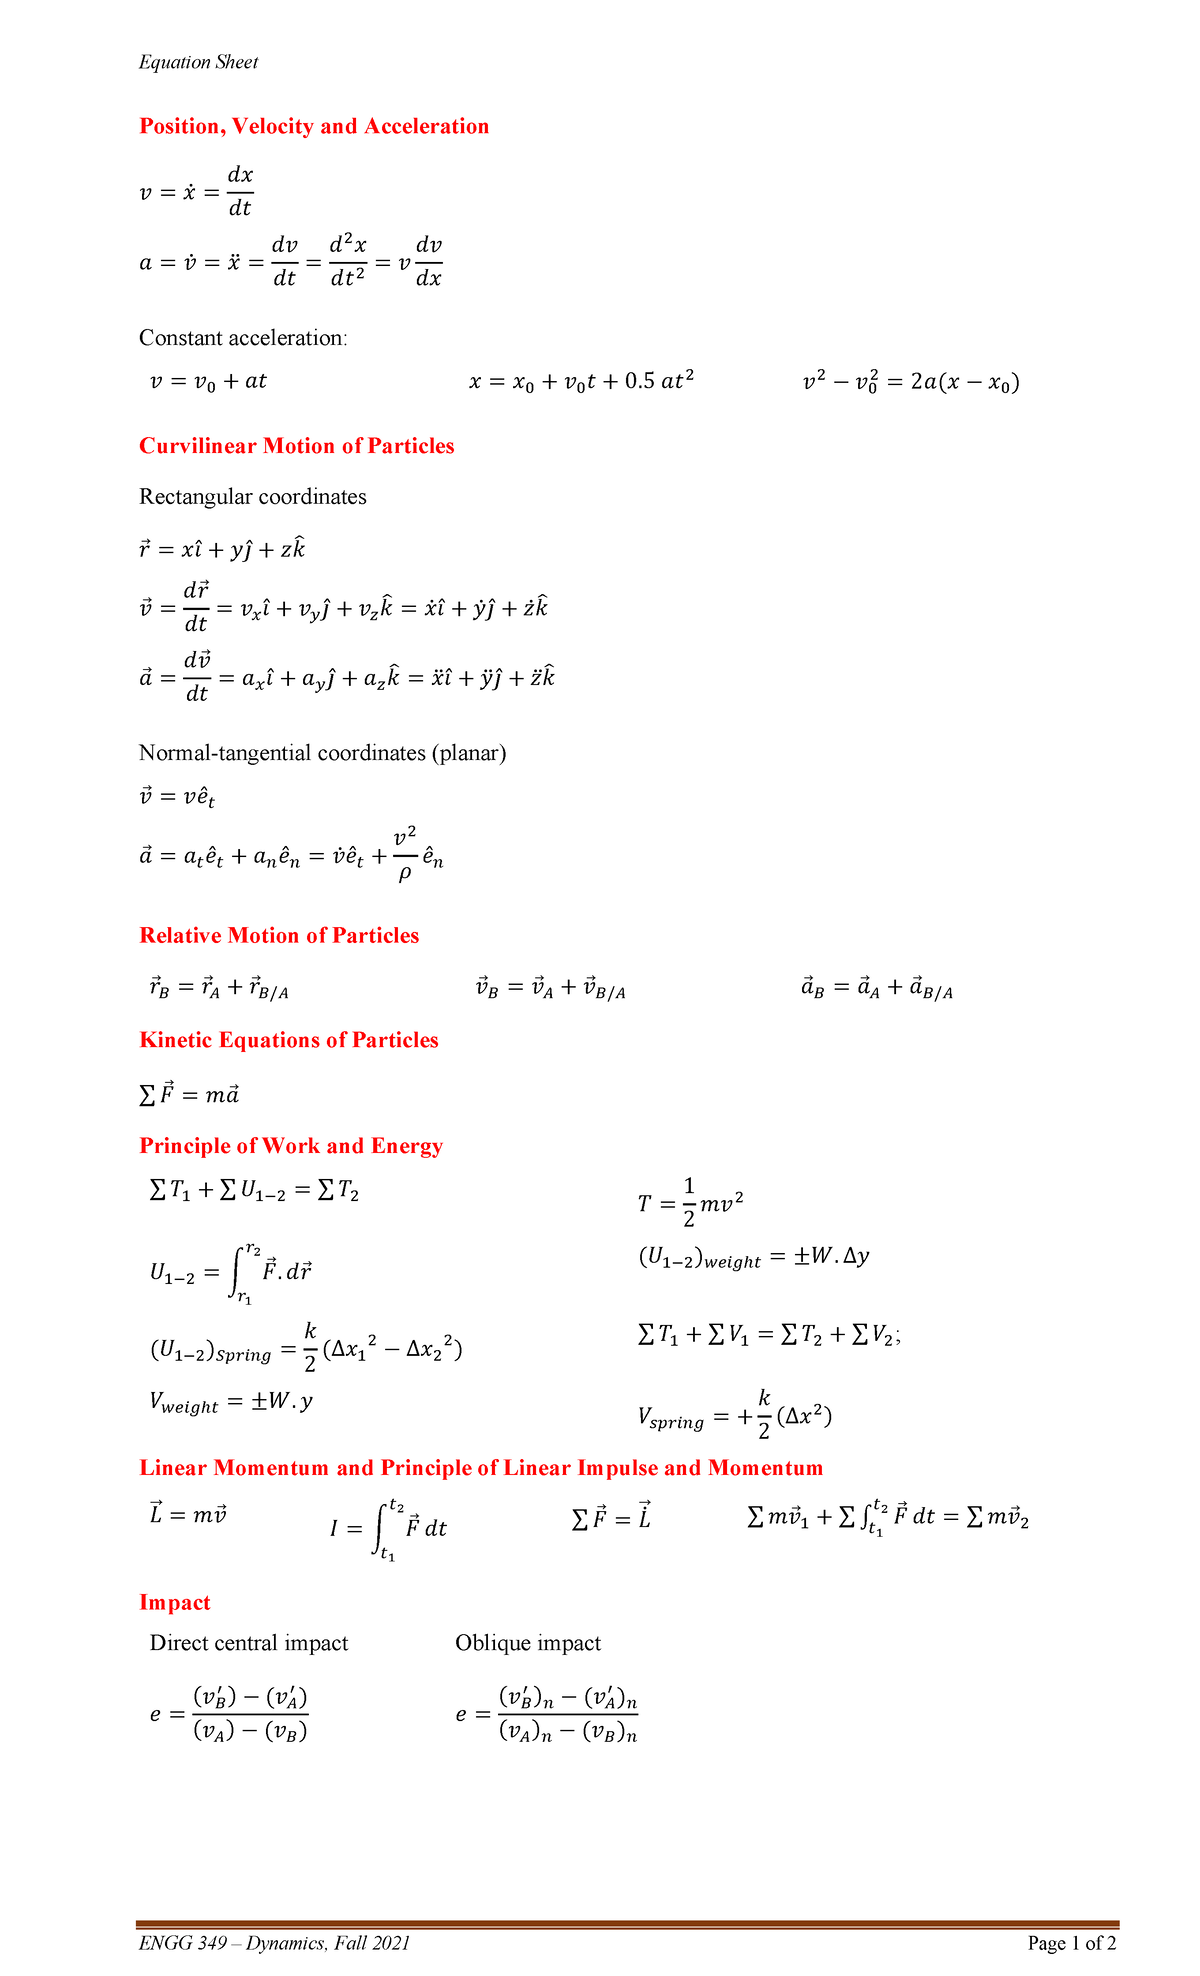 Equation Sheet
Position, Velocity and Acceleration
v = ẋ = dx/dt
a = v̇ = ẍ = dv/dt = d²x/dt² = v dv/dx
Constant acceleration:
v = v₀ + at    x = x₀ + v₀t + 0.5 at²    v² − v₀² = 2a(x − x₀)
Curvilinear Motion of Particles
Rectangular coordinates
r⃗ = xî + yĵ + zk̂
v⃗ = dr⃗/dt = vₓî + v_yĵ + v_zk̂ = ẋî + ẏĵ + żk̂
a⃗ = dv⃗/dt = aₓî + a_yĵ + a_zk̂ = ẍî + ÿĵ + z̈k̂
Normal-tangential coordinates (planar)
v⃗ = vêₜ
a⃗ = aₜêₜ + aₙêₙ = v̇êₜ + v²/ρ êₙ
Relative Motion of Particles
r⃗_B = r⃗_A + r⃗_B/A    v⃗_B = v⃗_A + v⃗_B/A    a⃗_B = a⃗_A + a⃗_B/A
Kinetic Equations of Particles
∑ F⃗ = ma⃗
Principle of Work and Energy
∑ T₁ + ∑ U₁₋₂ = ∑ T₂    T = 1/2 mv²
U₁₋₂ = ∫_r₁^r₂ F⃗. dr⃗    (U₁₋₂)_weight = ±W. Δy
(U₁₋₂)_Spring = k/2 (Δx₁² − Δx₂²)    ∑ T₁ + ∑ V₁ = ∑ T₂ + ∑ V₂;
V_weight = ±W. y    V_spring = + k/2 (Δx²)
Linear Momentum and Principle of Linear Impulse and Momentum
L⃗ = mv⃗    I = ∫_t₁^t₂ F⃗ dt    ∑ F⃗ = L⃗̇    ∑ mv⃗₁ + ∑ ∫_t₁^t₂ F⃗ dt = ∑ mv⃗₂
Impact
Direct central impact    Oblique impact
e = (v′_B) − (v′_A) / (v_A) − (v_B)    e = (v′_B)ₙ − (v′_A)ₙ / (v_A)ₙ − (v_B)ₙ
ENGG 349 – Dynamics, Fall 2021    Page 1 of 2